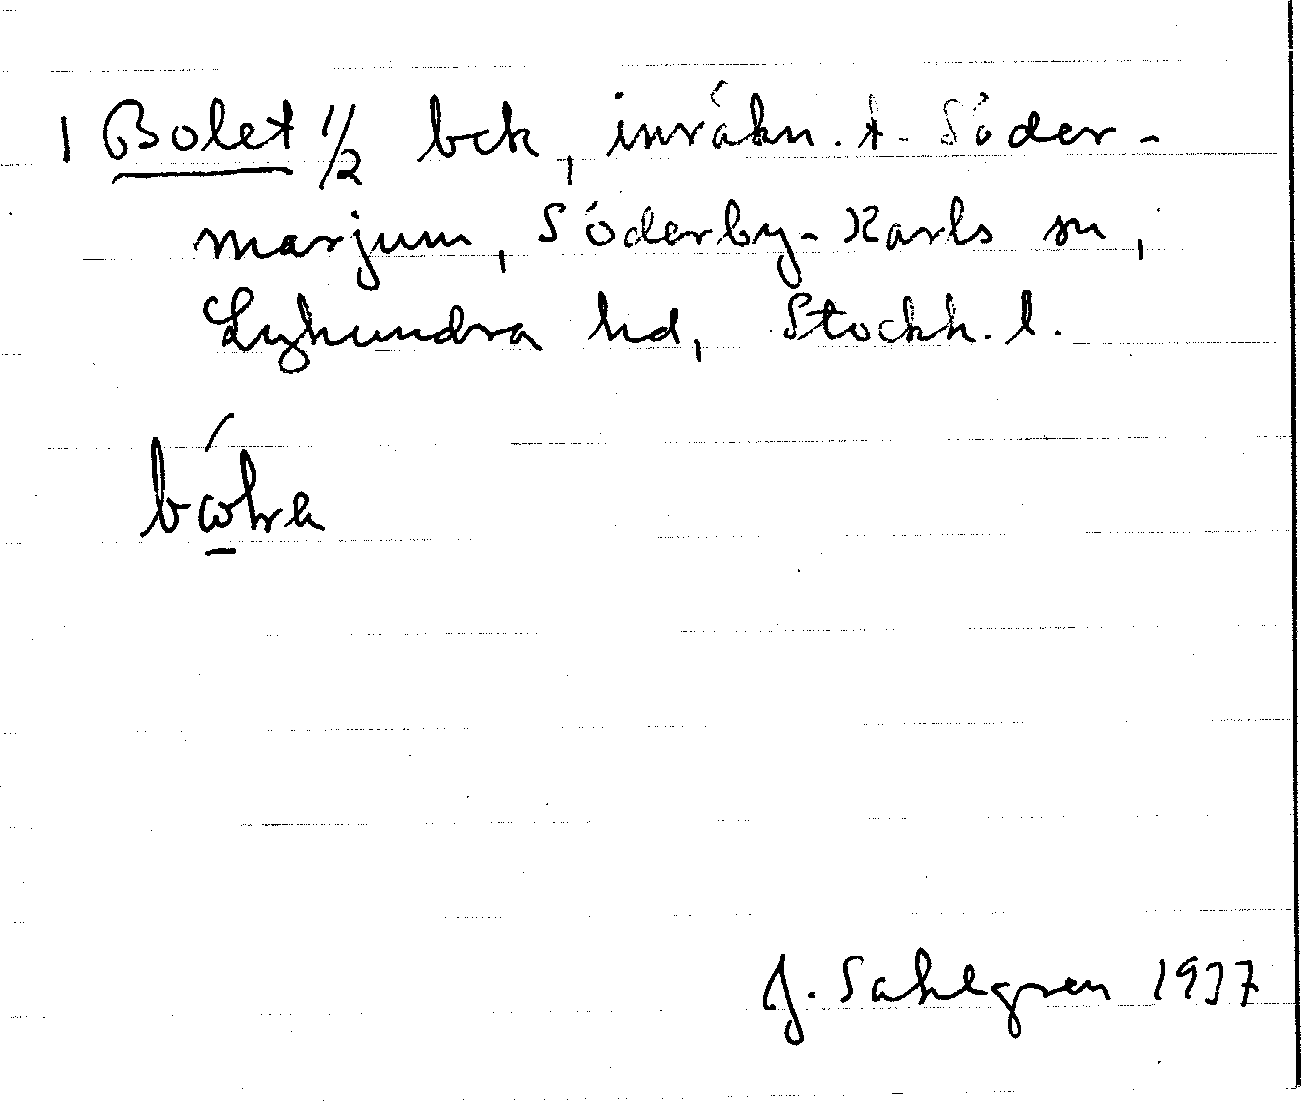 1 Bolet 1/2 bck, inräkn. t. Söder-
marjum, Söderby-Karls sn,
Lyhundra hd, Stockh. l.
J. Sahlgren 1937